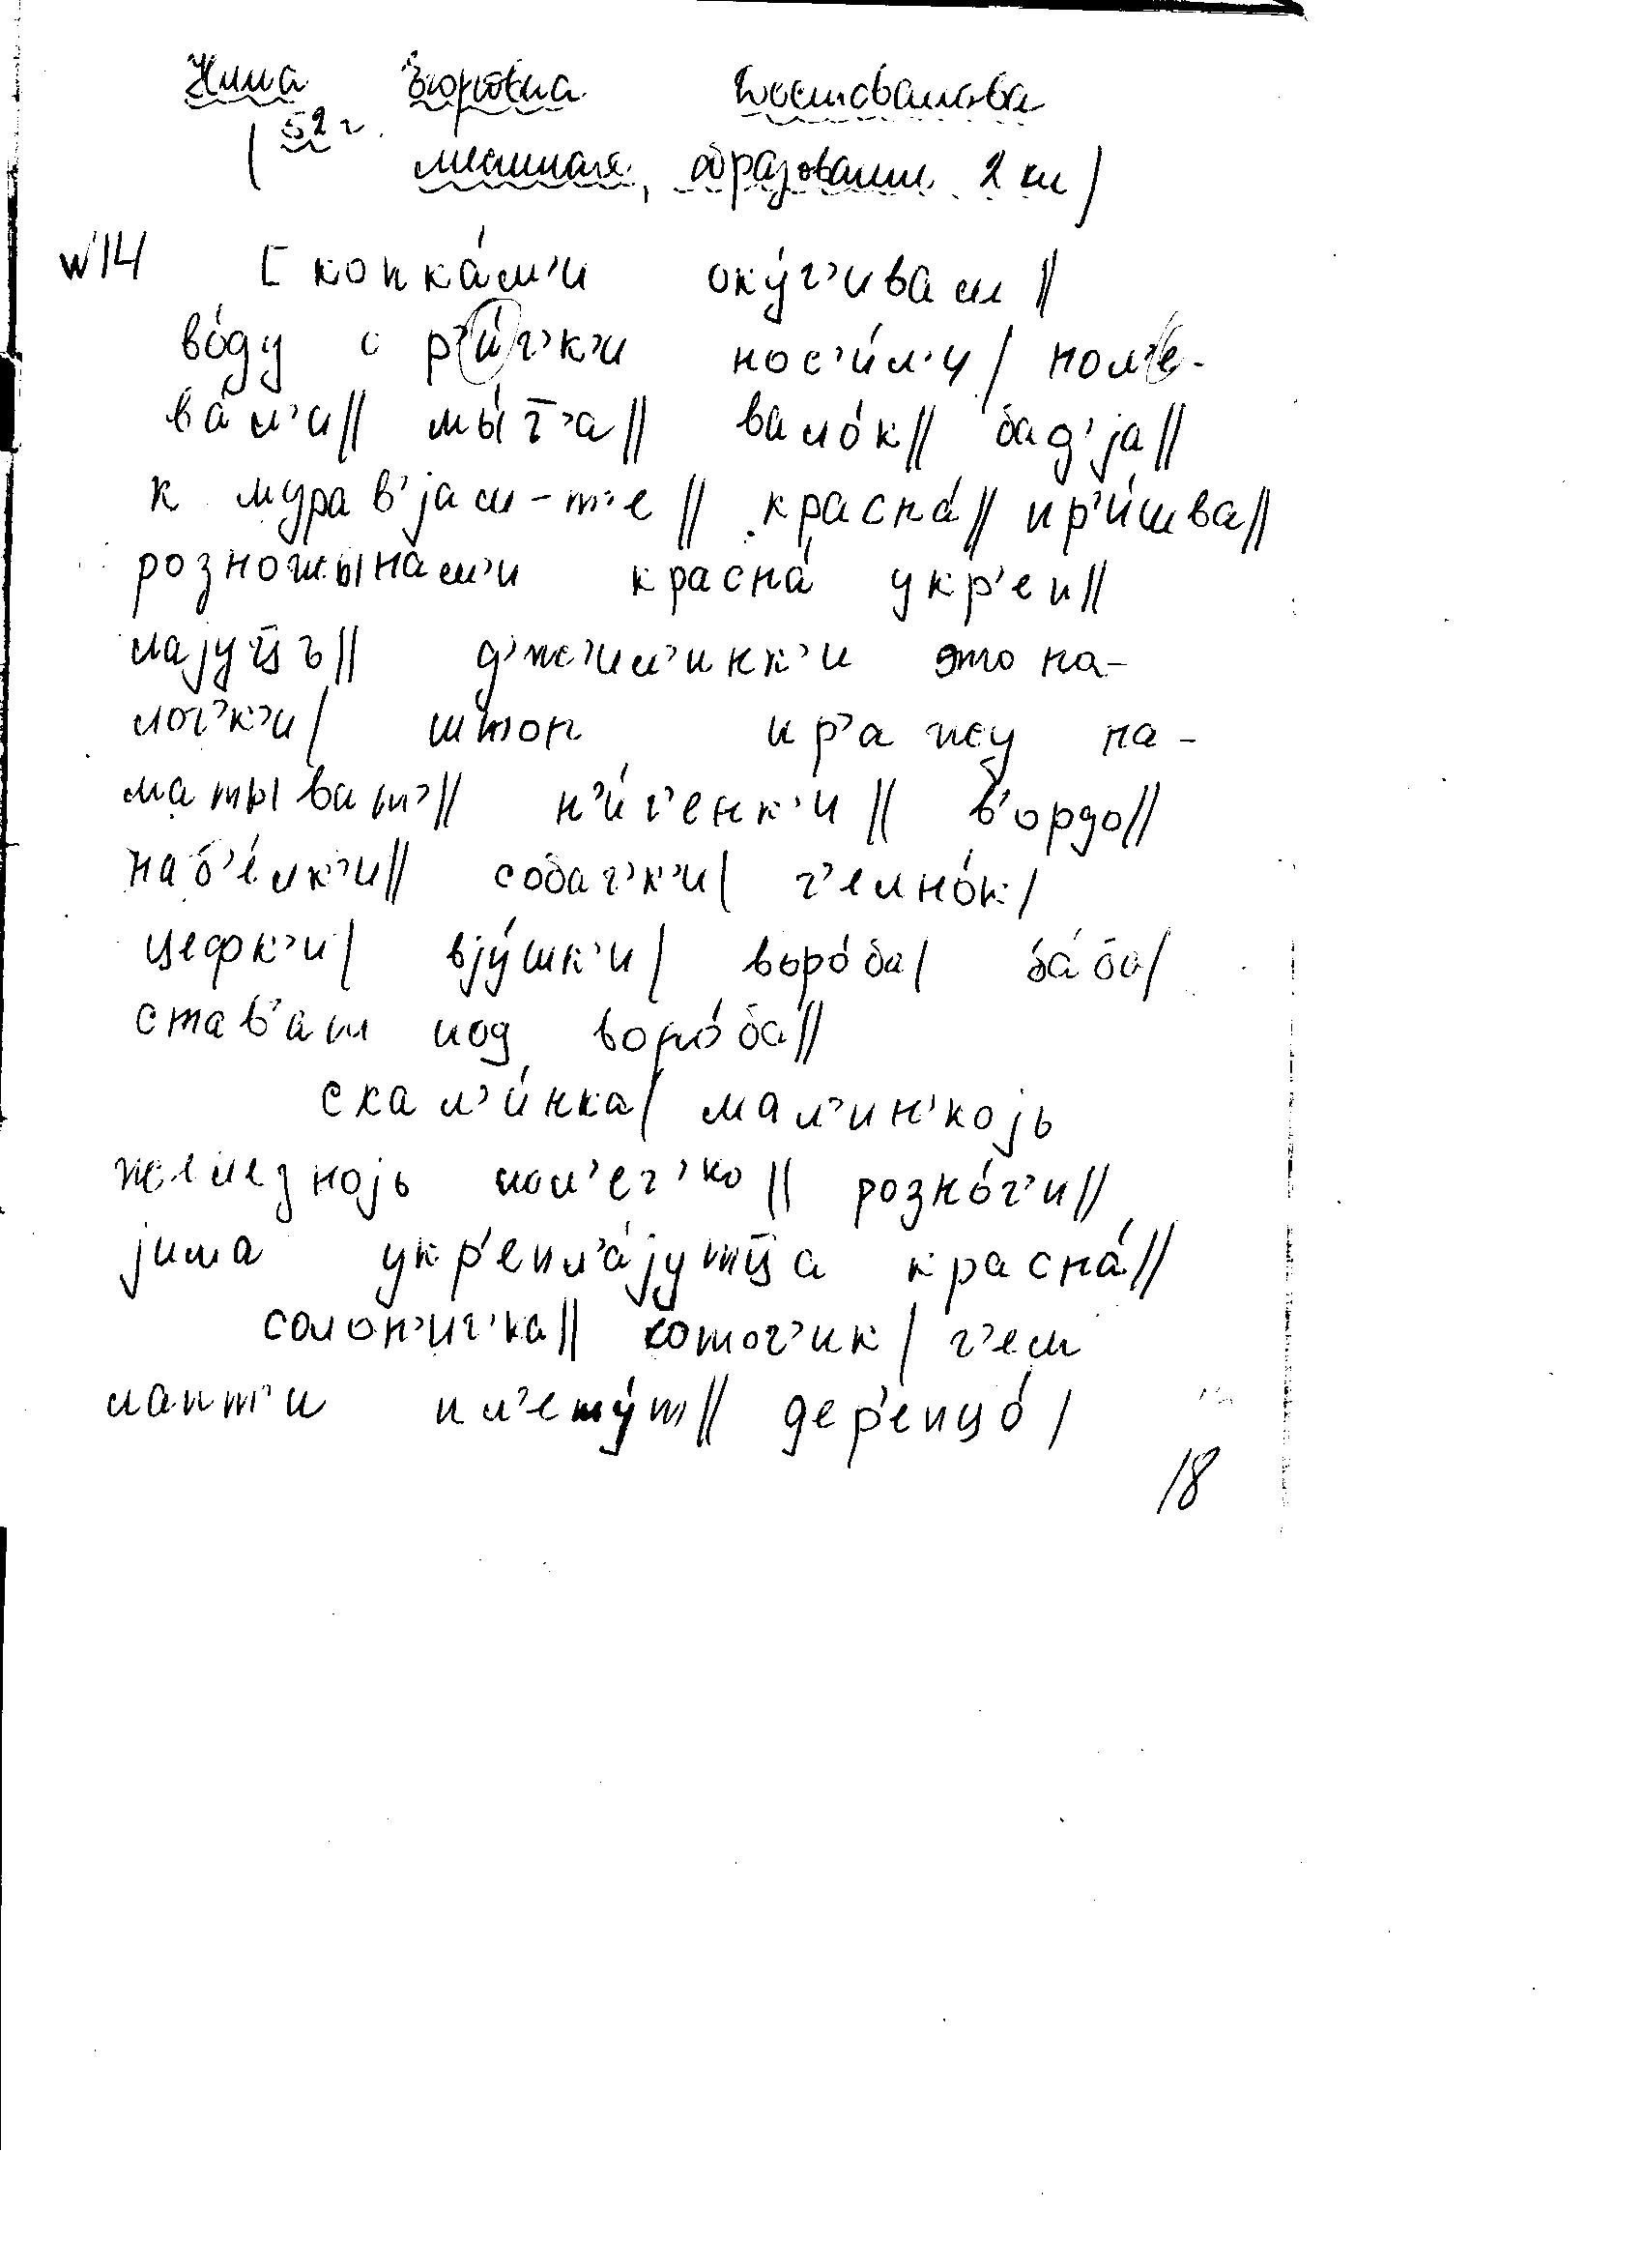 Нина Егоровна
( 52 г. местная, образование 2 кл )
№14 [ копка́м'и оку́ч'ивам ||
во́ду с р'и́ч'к'и нос'и́л'и / пол'е-
ва́л'и || мы́т̅'а || вало́к || бад'jа ||
к мурав'jам-т'е || красна́ || пр'и́шва ||
розножынам'и красна́ укр'еп ||
лаjуц̅ъ || д'ж'им'инк'и это па-
лоч'к'и / штоп пр'ажу на-
матыват' || н'и́ч'енк'и || б'ордо ||
наб'е́лк'и || собач'к'и / ч'елно́к /
цефк'и / вjу́шк'и / воро́ба / ба́ба /
став'ат под воро́ба ||
скал'и́нка / мал'ин'коjь
жележноjь кол'еч'ко || розно́г'и ||
jима укр'епл'а́jутц̅а красна́ ||
солон'ич'ка || коточ'ик / ч'ем
лапт'и пл'ету́т || дер'епцо́ /
18